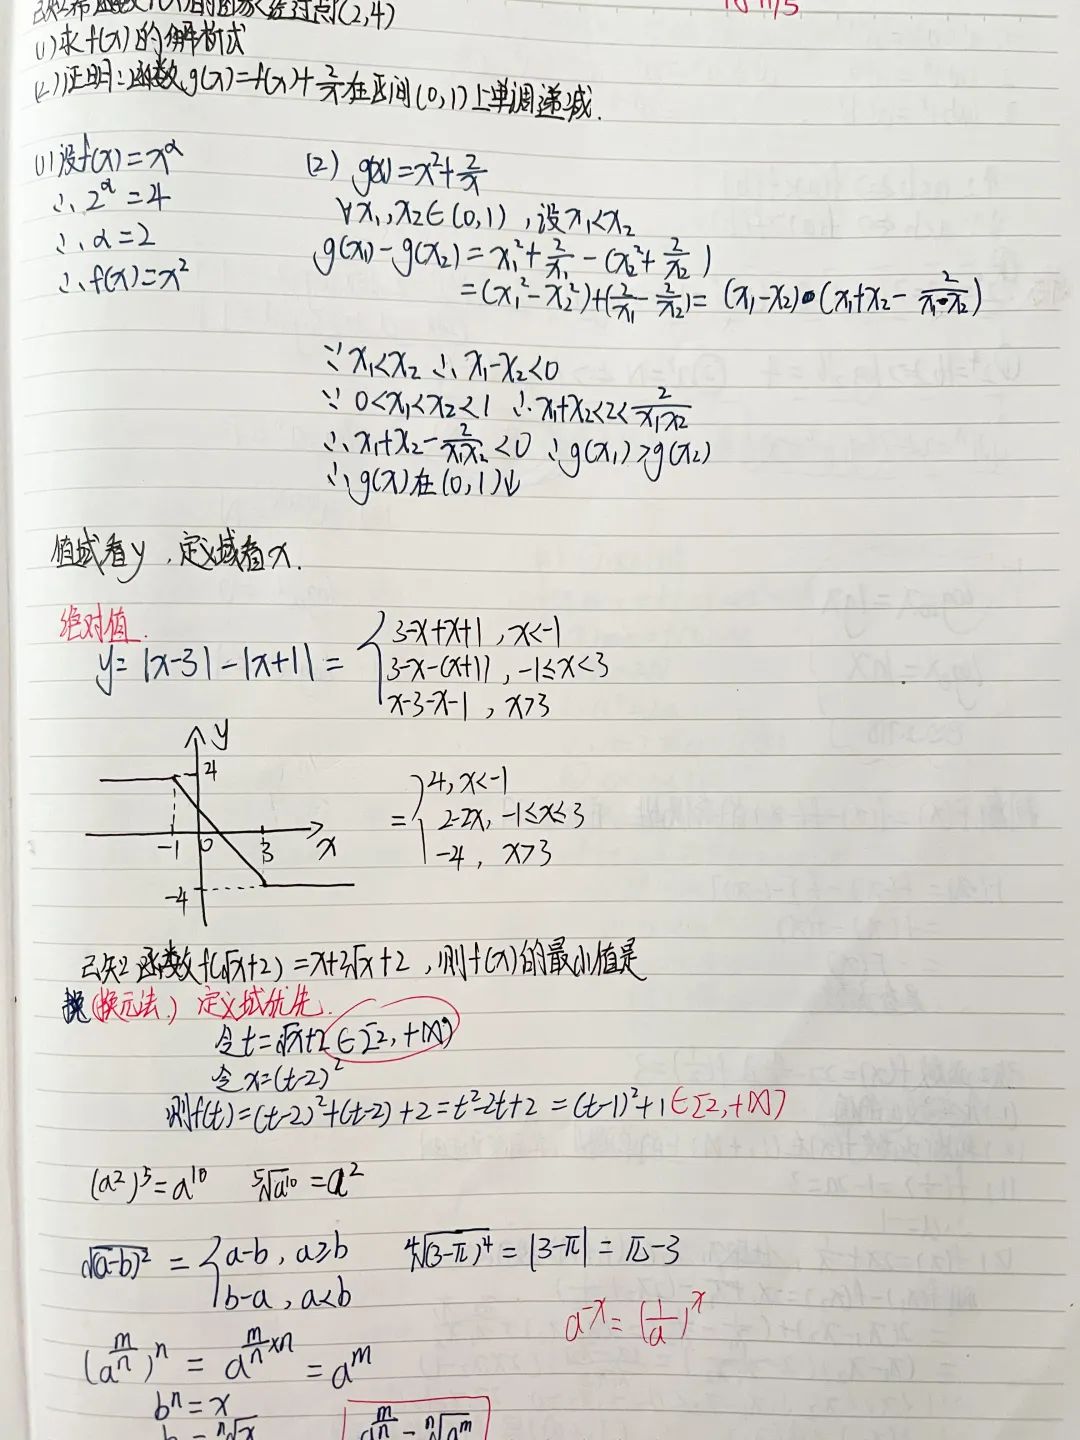 已知幂函数f(x)的图象经过点(2,4)
(1)求f(x)的解析式
(2)证明:函数g(x)=f(x)+2/x在区间(0,1)上单调递减.
(1)设f(x)=x^α
∴2^α=4
∴α=2
∴f(x)=x²
(2) g(x)=x²+2/x
∀x₁,x₂∈(0,1),设x₁<x₂
g(x₁)-g(x₂)=x₁²+2/x₁-(x₂²+2/x₂)
=(x₁²-x₂²)+(2/x₁-2/x₂)=(x₁-x₂)•(x₁+x₂-2/(x₁•x₂))
∵x₁<x₂ ∴x₁-x₂<0
∵0<x₁<x₂<1 ∴x₁+x₂<2<2/(x₁x₂)
∴x₁+x₂-2/(x₁x₂)<0 ∴g(x₁)>g(x₂)
∴g(x)在(0,1)↓
值域看y,定义域看x.
绝对值.
y=|x-3|-|x+1|={3-x+x+1,x<-1
3-x-(x+1),-1≤x<3
x-3-x-1,x>3
y
4
-1 0 3 x
-4
={4,x<-1
2-2x,-1≤x≤3
-4,x>3
已知函数f(√x+2)=x+3√x+2,则f(x)的最小值是
换(换元法.) 定义域优先.
令t=√x+2∈[2,+∞)
令x=(t-2)²
则f(t)=(t-2)²+(t-2)+2=t²-2t+2=(t-1)²+1∈[2,+∞)
(a²)⁵=a¹⁰ ⁵√a¹⁰=a²
√(a-b)²={a-b,a≥b
b-a,a<b
⁴√(3-π)⁴=|3-π|=π-3
a^-x=(1/a)^x
(a^(m/n))^n=a^(m/n×n)=a^m
bⁿ=x
b=ⁿ√x
a^(m/n)=ⁿ√a^m